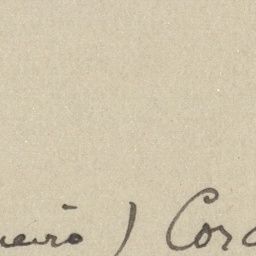 neiro) Cor